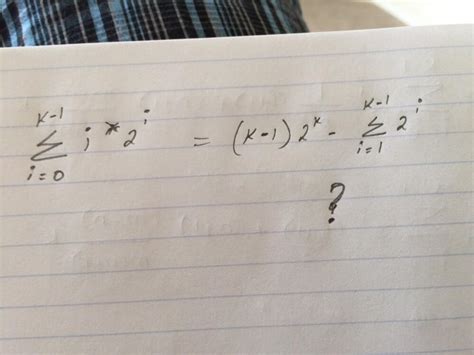 K-1 K-1
∑ i * 2^i = (K-1) 2^K - ∑ 2^i
i=0 i=1
?